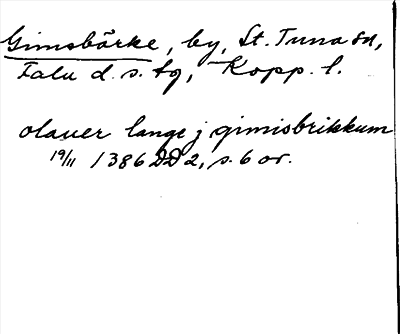 Gimsbärke, by, St. Tuna sn,
Falu d. s. tg, Kopp. l.
olauer lange j gimisbrikkum
19/11 1386 DD 2, s. 6 or.